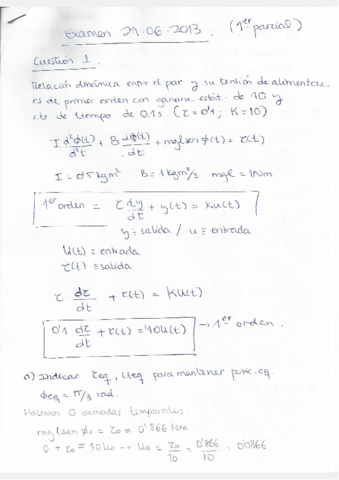 Examen 29·06·2013. (1er parcial)
Cuestión 1.
Relación dinámica entre el par y su tensión de alimentac.
es de primer orden con gananc. estát. de 10 y
cte de tiempo de 0.1s. (τ = 0'1 ; K = 10)
I d²φ(t)/d²t + B dφ(t)/dt + mglsen φ(t) = τ(t)
I = 0'5 kgm² B = 1 kgm²/s mgl = 1Nm
1er orden = τ dy/dt + y(t) = Ku(t)
y ≡ salida / u ≡ entrada
U(t) = entrada
τ(t) ≡ salida
τ dτ/dt + τ(t) = KU(t)
0'1 dτ/dt + τ(t) = 10U(t) → 1er orden.
a) Indicar τeq, Ueq para mantener punt. eq.
φeq = π/3 rad.
Hacemos 0 derivadas temporales.
mglsen φ₀ = τ₀ = 0'866 Nm
0 + τ₀ = 10U₀ → U₀ = τ₀/10 = 0'866/10 = 0'0866